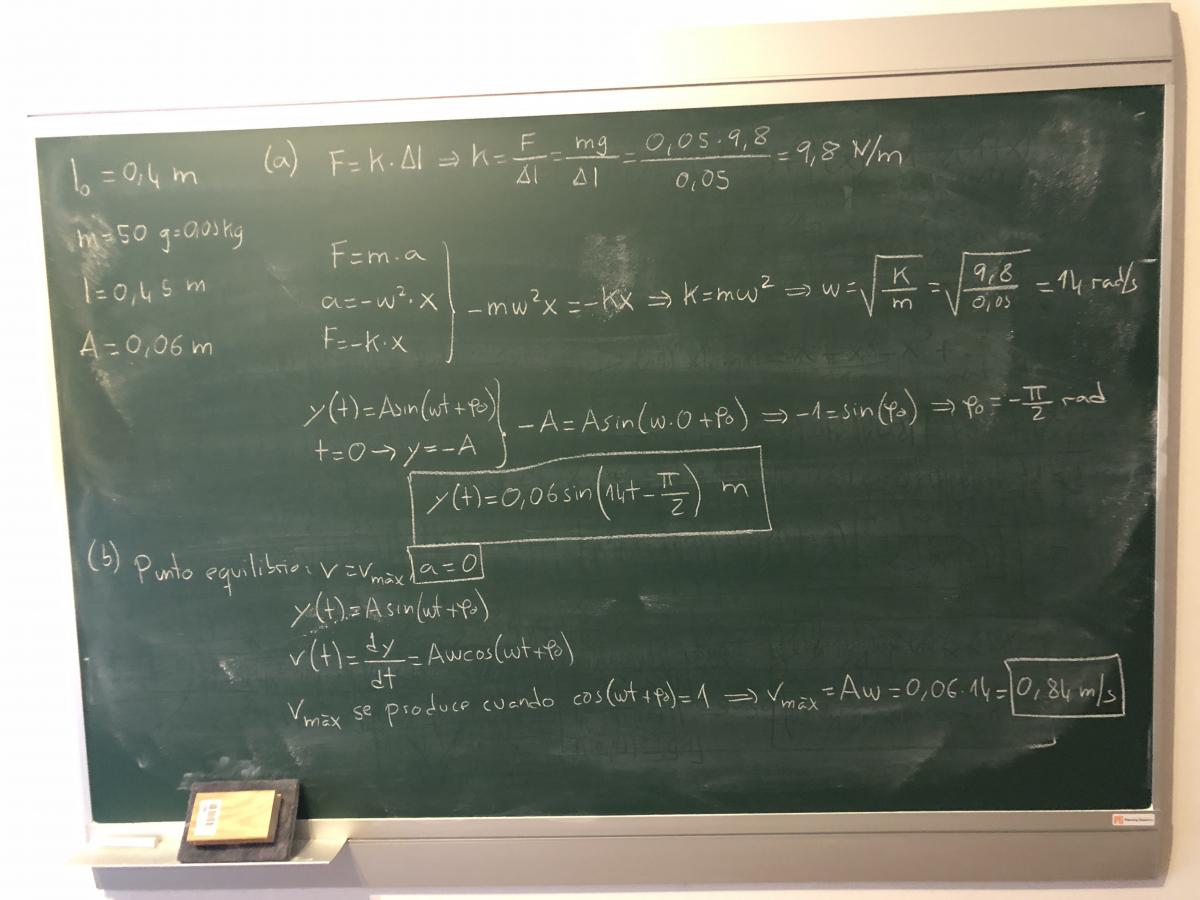 l₀ = 0,4 m
m = 50 g = 0,05 kg
l = 0,45 m
A = 0,06 m
(a) F = K · Δl ⇒ K = F/Δl = mg/Δl = 0,05 · 9,8/0,05 = 9,8 N/m
F = m · a
a = -w² · x
F = -K · x
} -mw²x = -Kx ⇒ K = mw² ⇒ w = √(K/m) = √(9,8/0,05) = 14 rad/s
y(t) = A sin(wt + φ₀)
t = 0 → y = -A
} -A = A sin(w · 0 + φ₀) ⇒ -1 = sin(φ₀) ⇒ φ₀ = -π/2 rad
y(t) = 0,06 sin(14t - π/2) m
(b) Punto equilibrio: v = vmáx, a = 0
y(t) = A sin(wt + φ₀)
v(t) = dy/dt = Aw cos(wt + φ₀)
Vmáx se produce cuando cos(wt + φ₀) = 1 ⇒ Vmáx = Aw = 0,06 · 14 = 0,84 m/s